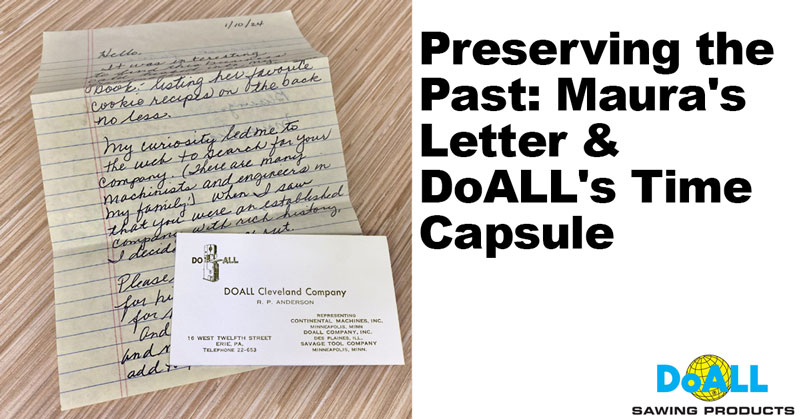 1/10/24
Hello.
It was interesting
to
book, listing her favorite
cookie recipes on the back
no less.
My curiosity led me to
the web to search for your
company. (There are many
machinists and engineers in
my family!) When I saw
that you were an established
company with rich history,
I
Please
for
for
And
and
add
DOALL
DOALL Cleveland Company
R. P. ANDERSON
REPRESENTING
CONTINENTAL MACHINES, INC.
MINNEAPOLIS, MINN
DOALL COMPANY, INC.
DES PLAINES, ILL.
SAVAGE TOOL COMPANY
MINNEAPOLIS, MINN.
16 WEST TWELFTH STREET
ERIE, PA.
TELEPHONE 22-653
Preserving the
Past: Maura's
Letter &
DoALL's Time
Capsule
DoALL
SAWING PRODUCTS